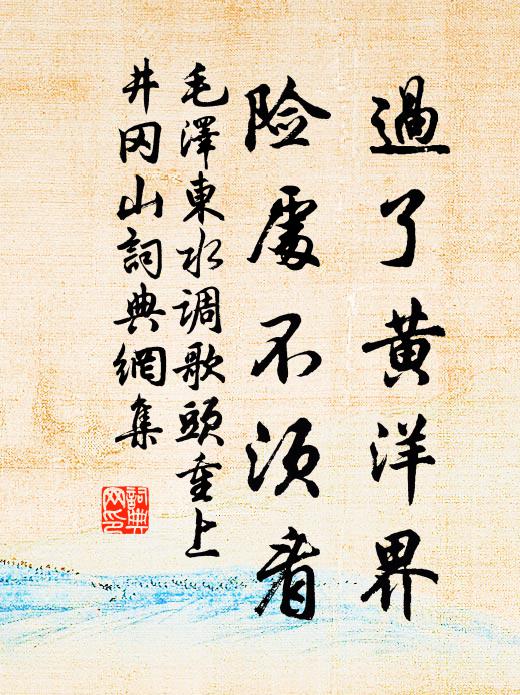 過了黄洋界
险處不须看
毛澤東水调歌頭重上
井冈山詞典網集
詞典
网印